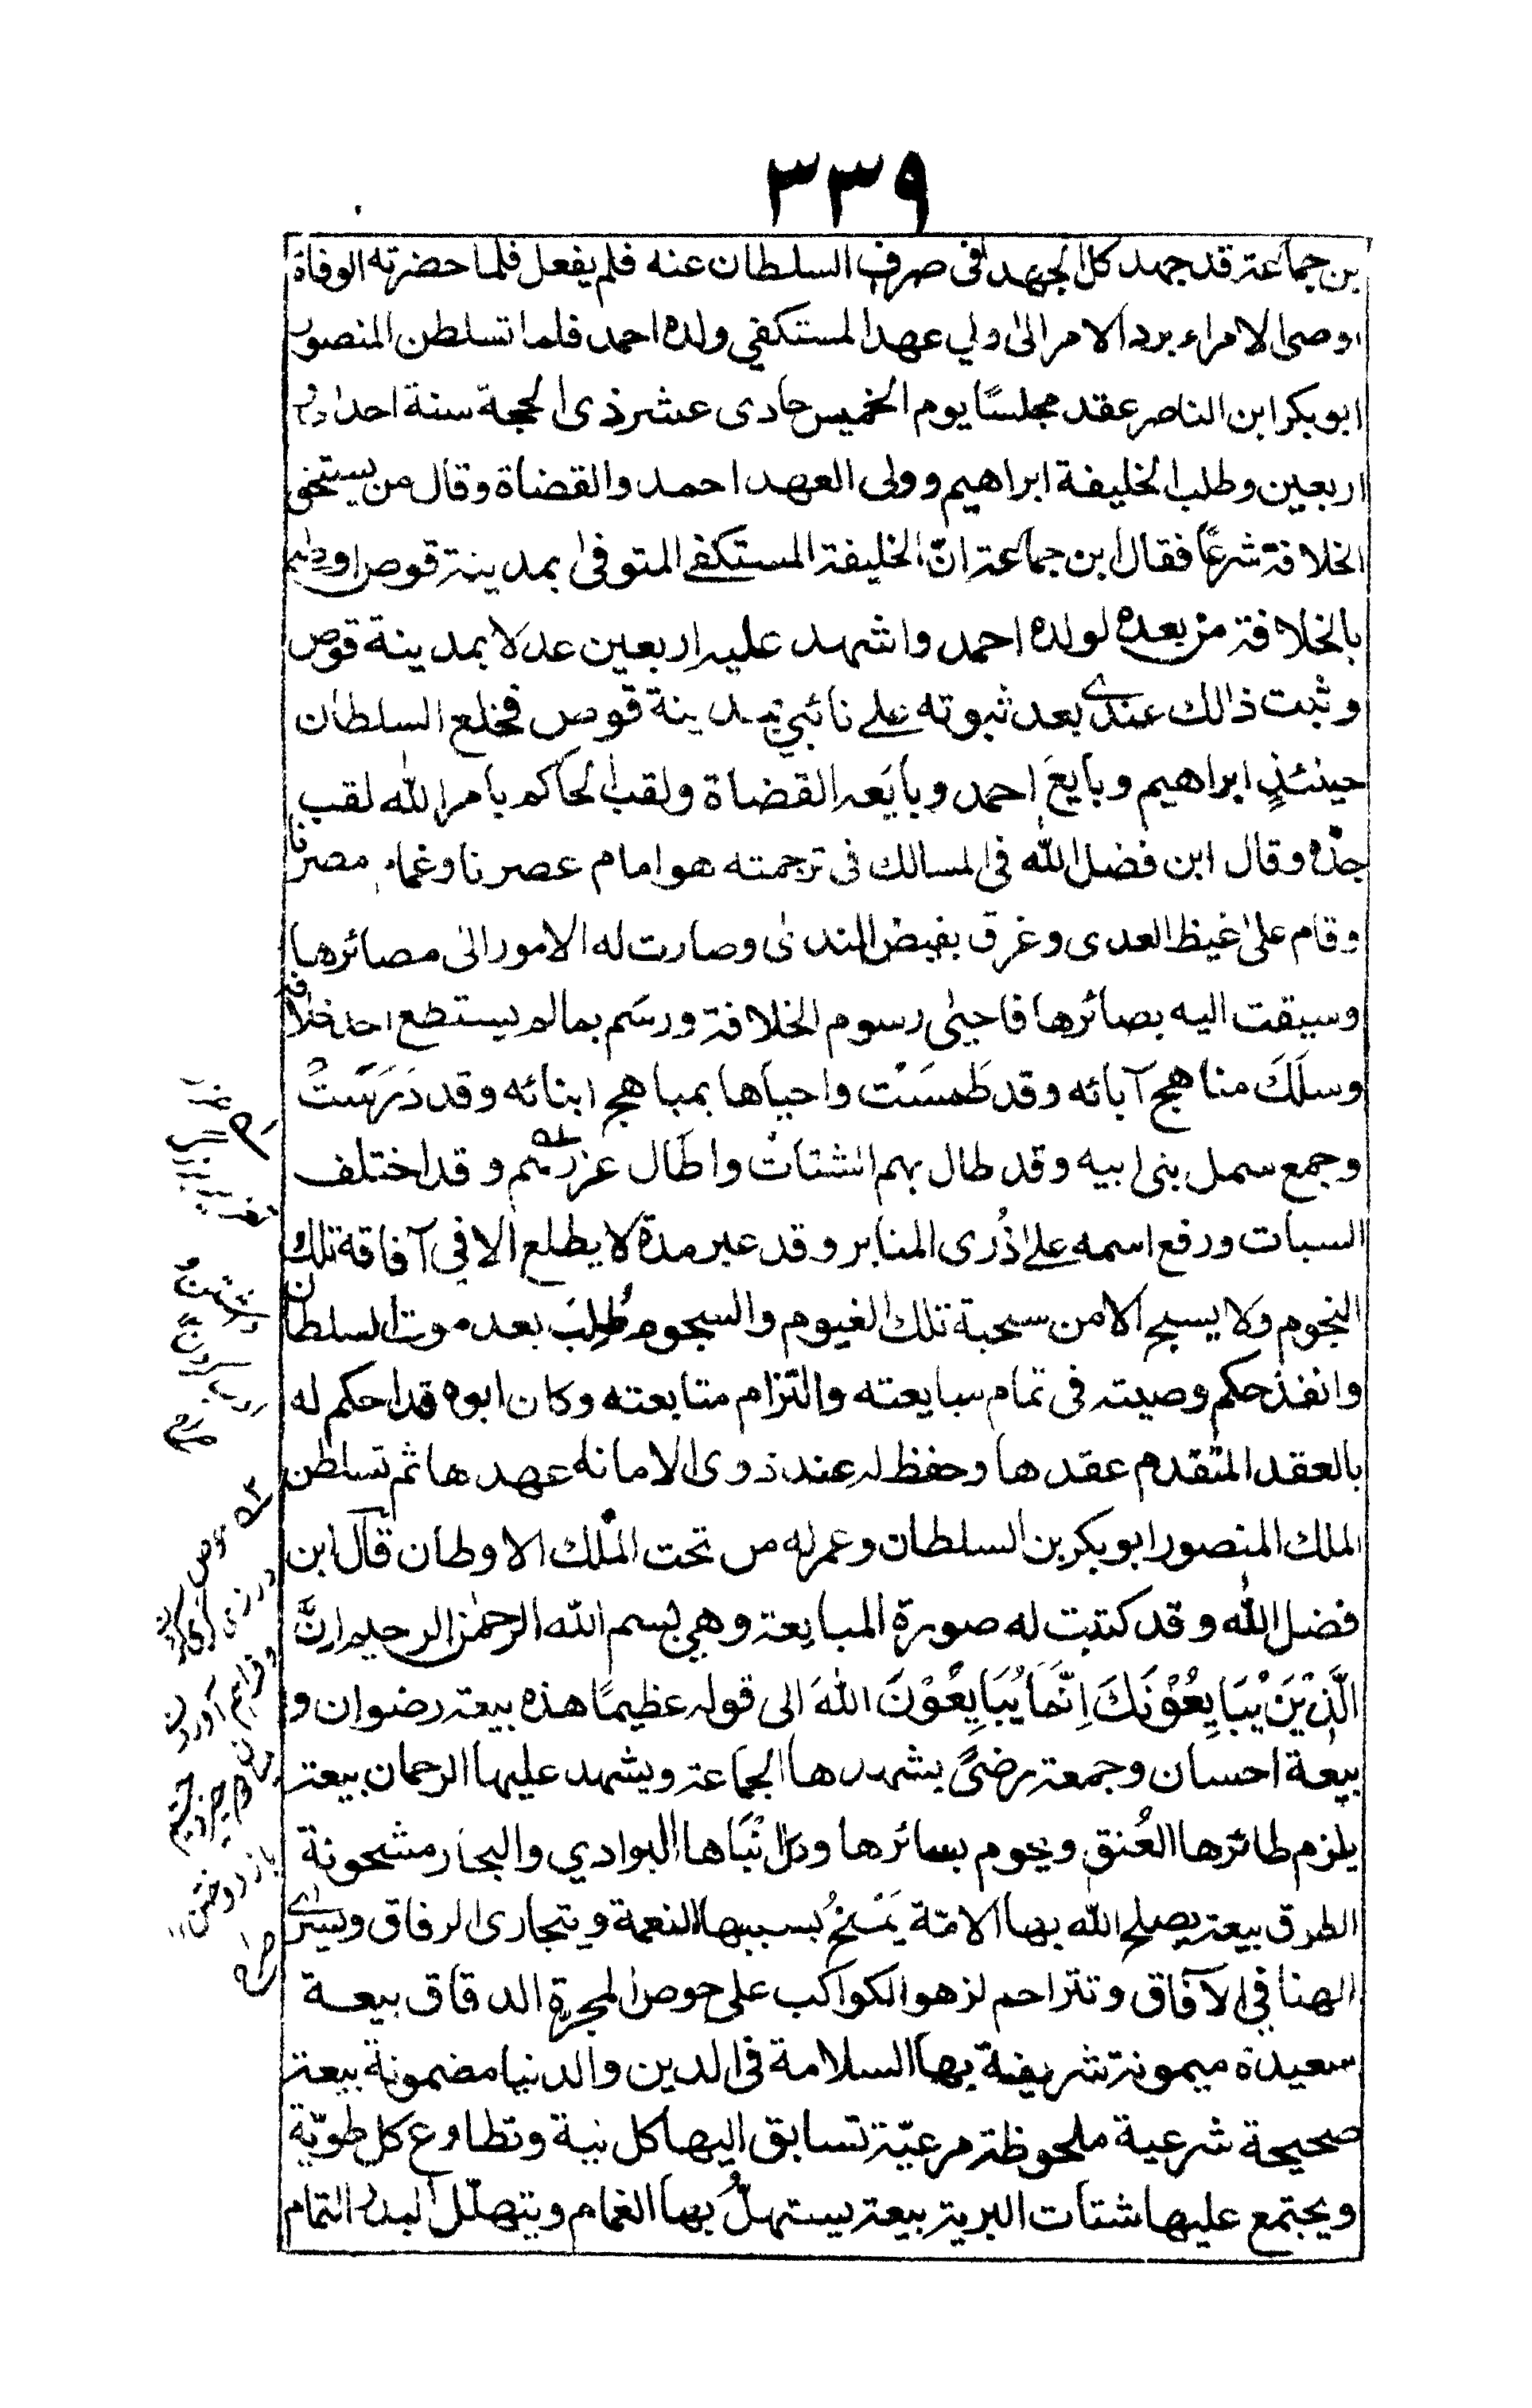 ٣٣٩
بن جماعة قد جهد كل الجهد فى صرف السلطان عنه فلم يفعل فلما حضرته الوفاة
اوصى الامراء برد الامر الى ولي عهد المستكفي ولده احمد فلما تسلطن المنصور
ابو بكر ابن الناصر عقد مجلسًا يوم الخميس حادى عشر ذى الحجة سنة احدى و
اربعين وطلب الخليفة ابراهيم وولى العهد احمد والقضاة وقال من يستحق
الخلافة شرعًا فقال ابن جماعة انّ الخليفة المستكفى المتوفى بمدينة قوص اوصى
بالخلافة من بعده لولده احمد واشهد عليه اربعين عدلا بمدينة قوص
وثبت ذالك عندي بعد ثبوته على نائبي بمدينة قوص فخلع السلطان
حينئذٍ ابراهيم وبايعَ احمد وبايَعه القضاة ولقب الحاكم بامر الله لقب
جدّه وقال ابن فضل الله فى المسالك فى ترجمته هو امام عصرنا وغمام مصرنا
وقام على غيظ العدى وغرق بفيض الندى وصارت له الامور الى مصائرها
وسيقت اليه بصائرها فاحيى رسوم الخلافة ورسَم بما لم يستطع احد خلافه
وسلَكَ مناهج آبائه وقد طَمسَت واحياها بمباهج ابنائه وقد دَرَسَتْ
وجمع سمل بنى ابيه وقد طال بهم الشتات واطال عزرهم وقد اختلف
السبات ورفع اسمه على ذُرى المنابر وقد عبر مدة لا يطلع الا فى آفاقه تلك
النجوم ولا يسبح الا من سحبة تلك الغيوم والسجوم طُلِبَ بعد موت السلطان
وانفذ حكم وصيته فى تمام مبايعته والتزام متابعته وكان ابوه قد احكم له
بالعقد المتقدم عقدها وحفظ له عند ذوى الامانه عهدها ثم تسلطن
الملك المنصور ابو بكر بن السلطان وعمر له من تحت الملك الاوطان قال ابن
فضل الله وقد كتبت له صورة المبايعة وهي بسم الله الرحمٰن الرحيم انَّ
الَّذِيْنَ يُبَايِعُوْنَكَ اِنَّمَا يُبَايِعُوْنَ اللهَ الى قوله عظيمًا هذه بيعة رضوان و
بيعة احسان وجمعة رضىً يشهدها الجماعة ويشهد عليها الرحمان بيعة
يلزم طائرها العُنق ويحوم بسائرها ودل نْبَاها البوادي والبحار مشحونة
الطرق بيعة يصلح الله بها الامّة يَمْنحُ بسببها النعمة ويتجارى الرفاق ويسرى
الهنا في الآفاق وتتراحم لزهو الكواكب على حوض المجرة الدقاق بيعة
سعيدة ميمونة شريفة بها السلامة فى الدين والدنيا مضمونة بيعة
صحيحة شرعية ملحوظة مرعيّة تسابق اليها كل نية وتطاوع كل طويّة
ويجتمع عليها شتات البرية بيعة يستهلّ بها الغمام ويتهلّل البدر التمام